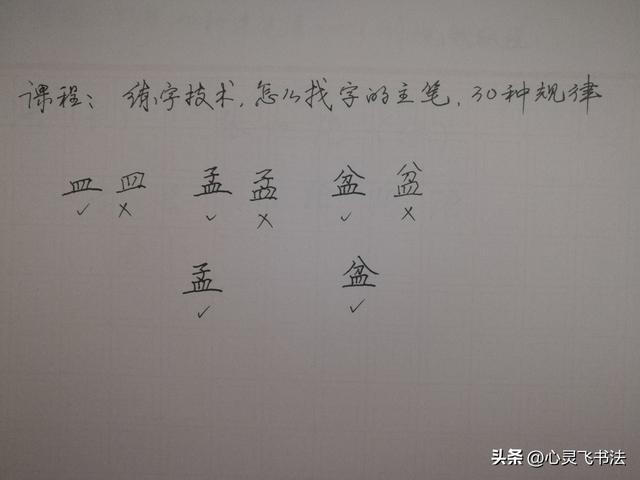 课程：练字技术，怎么找字的主笔，30种规律
皿 皿 孟 孟 盆 盆
✓ × ✓ × ✓ ×
孟 盆
✓ ✓
头条 @心灵飞书法